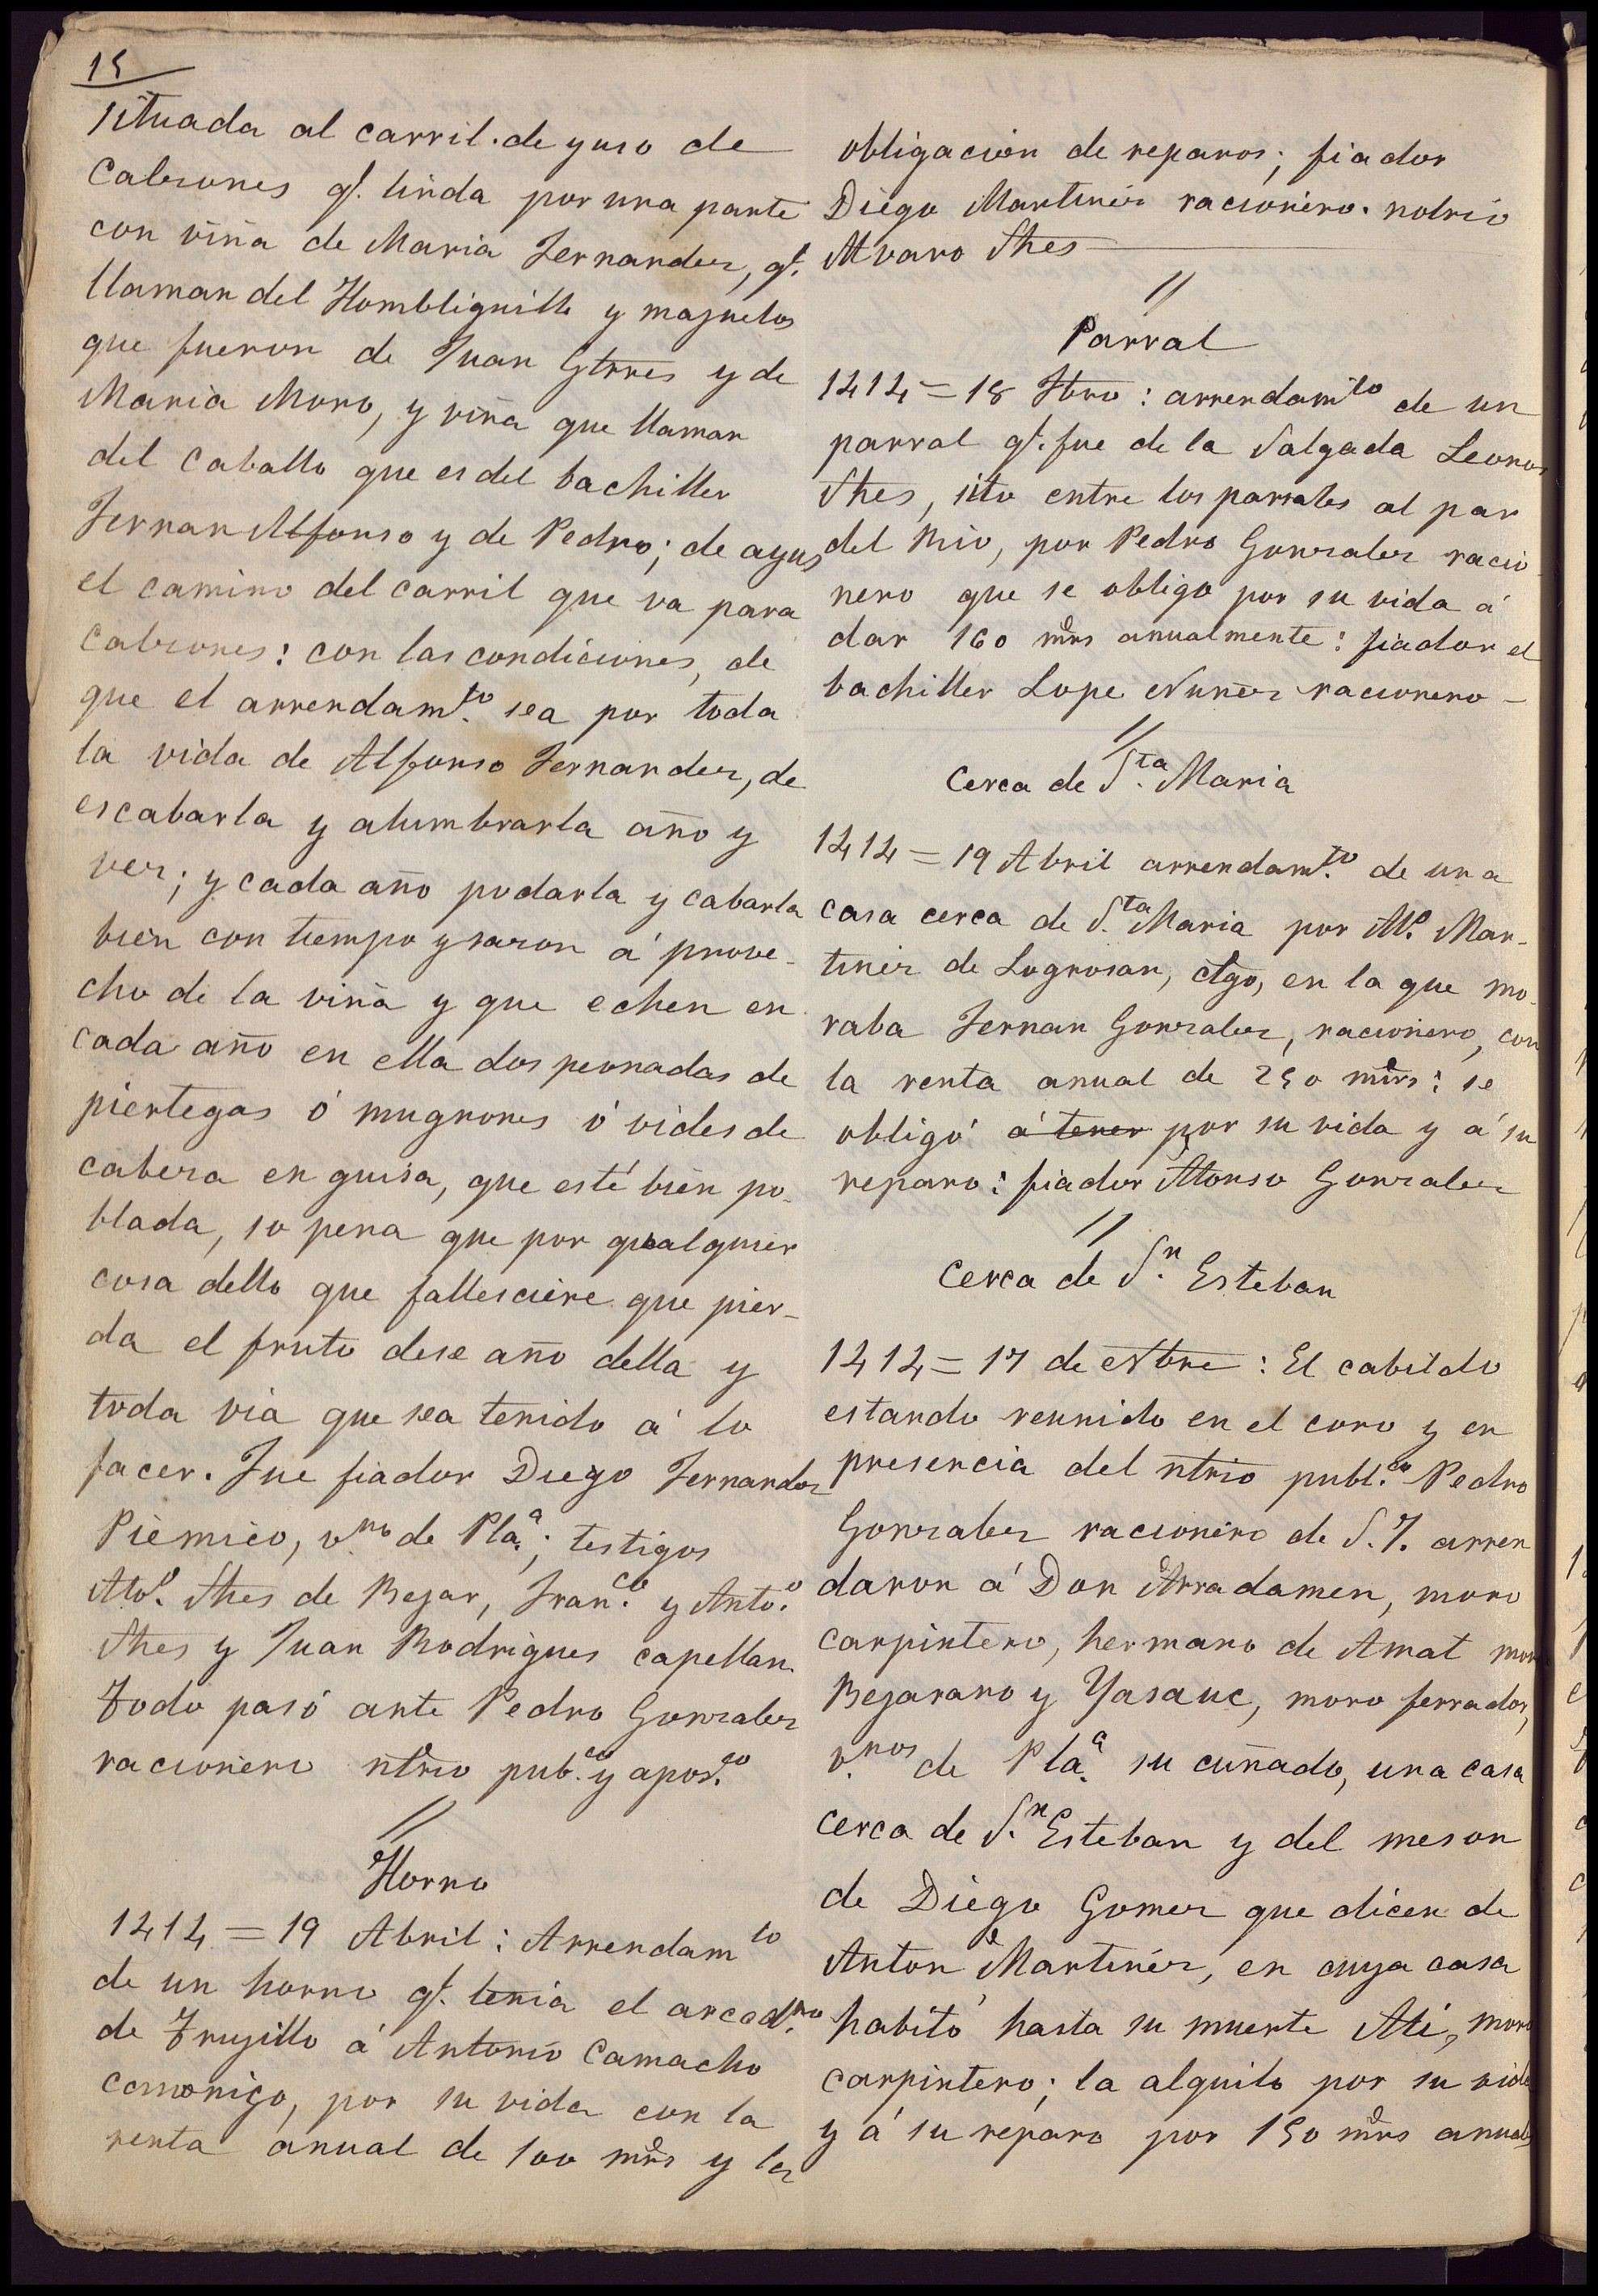 15
situada al carril de yuso de
Cabezones q.e linda por una parte
con viña de Maria Fernandez, q.e
llaman del Hombliguillo y majuelos
que fueron de Juan Gtrres y de
Maria Moro, y viña que llaman
del caballo que es del bachiller
Fernan Alfonso y de Pedro; de ayuso
el camino del carril que va para
Cabezones: con las condiciones, de
que el arrendam.to sea por toda
la vida de Alfonso Fernandez, de
escabarla y alumbrarla año y
vez; y cada año podarla y cabarla
bien con tiempo y sazon á prove-
cho de la viña y que echen en
cada año en ella dos peonadas de
piertegas ó mugrones ó vides de
cabeza en guisa, que esté bien po-
blada, so pena que por qualquier
cosa dello que fallesciere que pier-
da el fruto dese año della y
toda via que sea tenido á lo
facer. Fue fiador Diego Fernandez
Piemico, v.no de Pla.a; testigos
Alo.o Shes de Bejar, Fran.co y Anto.o
Shes y Juan Rodrigues capellan.
Todo pasó ante Pedro Gonzalez
racionero ntrio pub.co y apos.co
//
Horno
1414 = 19 Abril: Arrendam.to
de un horno q.e tenia el arced.no
de Trujillo á Antonio Camacho
canonigo, por su vida con la
renta anual de 100 mrs y la
obligacion de reparos; fiador
Diego Martinez racionero. notrio
Alvaro Shes
//
Parral
1414 = 18 Fbro: arrendam.to de un
parral q.e fue de la Salgada Leonor
Shes, sito entre los parrales al par
del Rio, por Pedro Gonzalez racio
nero que se obligo por su vida á
dar 160 mrs anualmente: fiador el
bachiller Lope Nuñez racionero -
//
Cerca de S.ta Maria
1414 = 19 Abril arrendam.to de una
casa cerca de S.ta Maria por Al.o Mar-
tinez de Logrosan, clgo, en la que mo-
raba Fernan Gonzalez, racionero, con
la renta anual de 250 mrs: se
obligó á tener por su vida y á su
reparo: fiador Alonso Gonzalez
//
Cerca de S.n Esteban
1414 = 17 de Nbre: El cabildo
estando reunido en el coro y en
presencia del ntrio publ.co Pedro
Gonzalez racionero de S. I. arren
daron á Don Arradamen, moro
carpintero, hermano de Amat moro
Bejarano y Yasauc, moro ferrador,
v.nos de Pla.a su cuñado, una casa
cerca de S.n Esteban y del meson
de Diego Gomez que dicen de
Anton Martinez, en cuya casa
habitó hasta su muerte Ali, moro
carpintero; la alquilo por su vida
y á su reparo por 150 mrs anuales